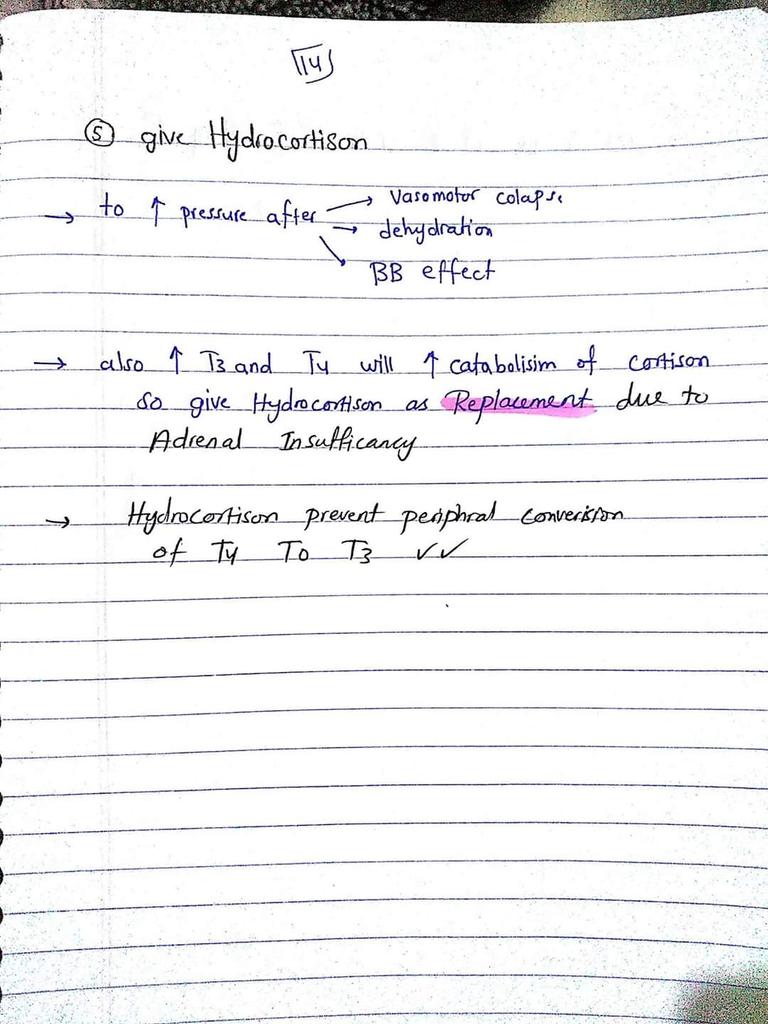 14
⑤ give Hydrocortison
→ to ↑ pressure after → Vasomotor colapse
→ dehydration
↘ BB effect
→ also ↑ T3 and T4 will ↑ catabolisim of cortison
so give Hydrocortison as Replacement due to
Adrenal Insufficancy
→ Hydrocortison prevent periphral converision
of T4 To T3 ✓✓